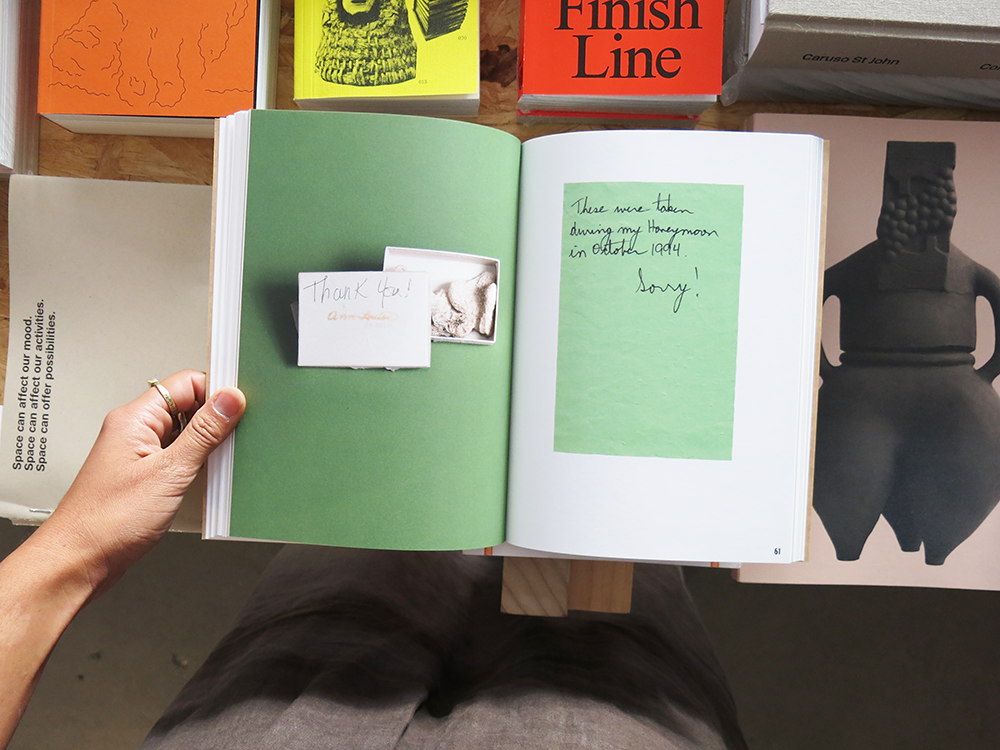 Finish
Line
Caruso St John
Space can affect our mood.
Space can affect our activities.
Space can offer possibilities.
Thank You!
These were taken
during my Honeymoon
in October 1994.
Sorry!
61